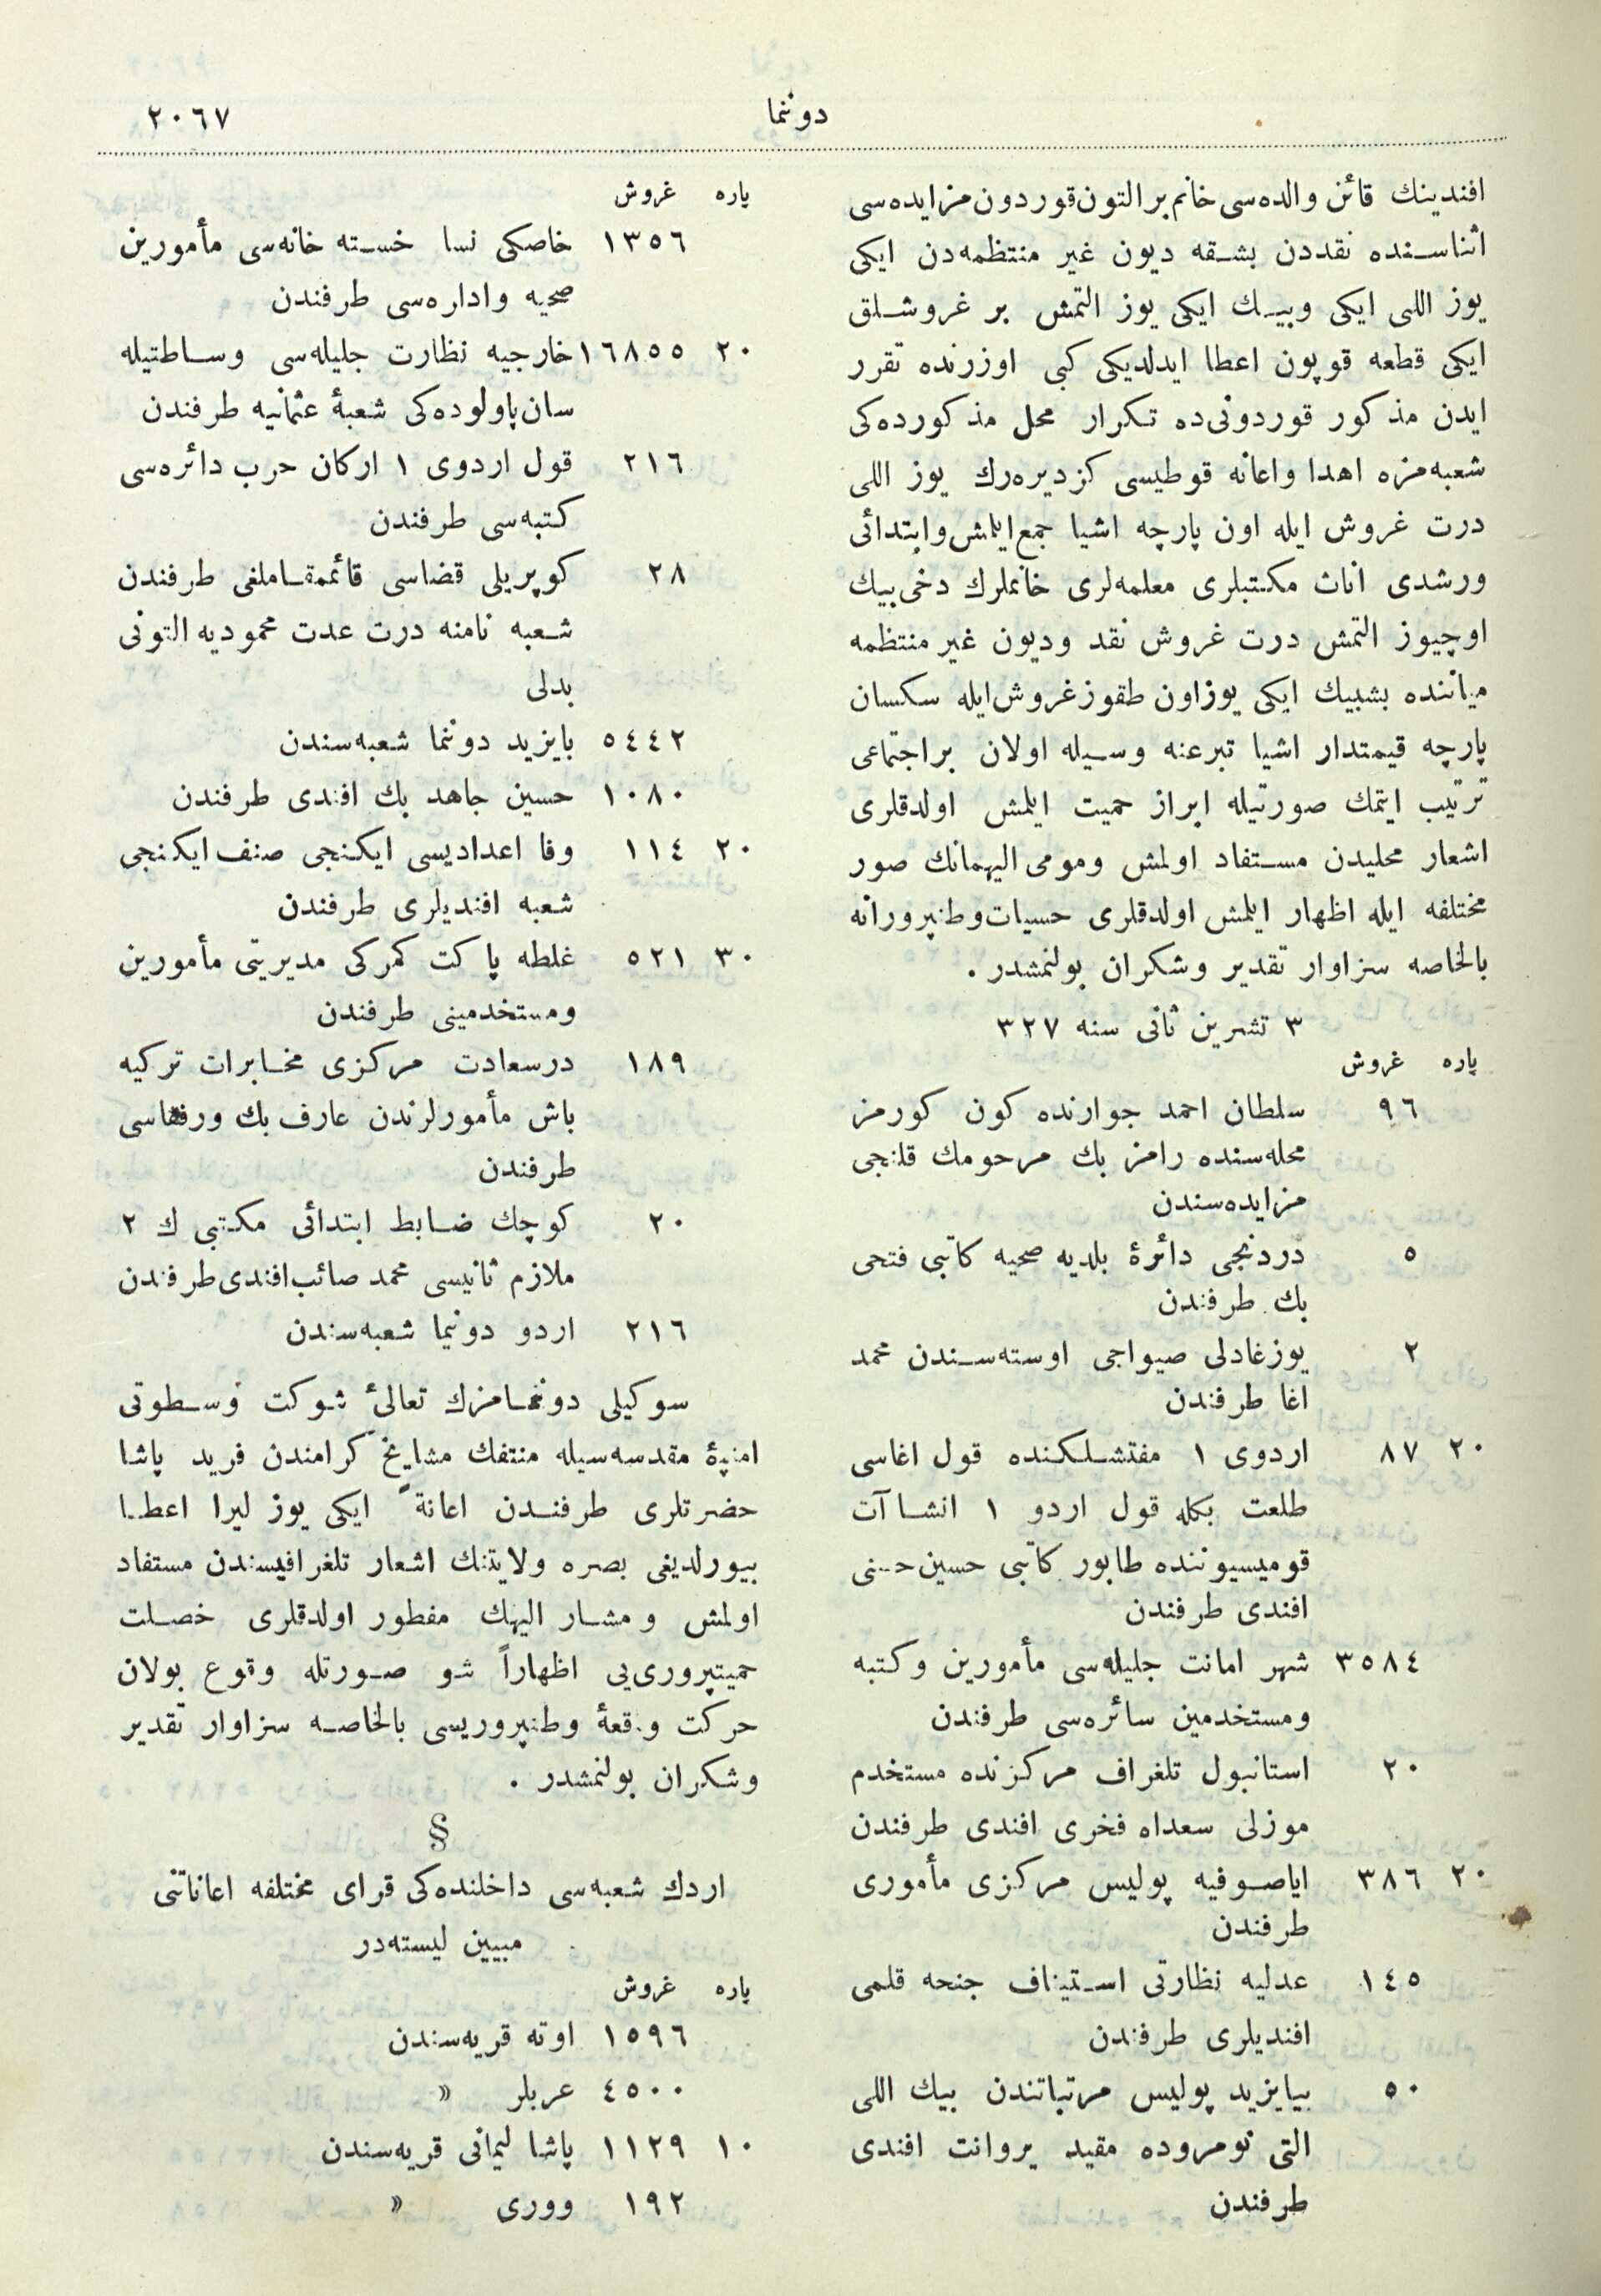 دوننما
٢٠٦٧
افندینك قائن والده‌سی خانم بر التون قوردون مزایده‌سی
اثناسنده نقددن بشقه دیون غیر منتظمه‌دن ایکی
یوز اللی ایکی وبیك ایکی یوز التمش بر غروشلق
ایکی قطعه قوپون اعطا ایدلدیکی کبی اوزرنده تقرر
ایدن مذکور قوردونی‌ده تکرار محل مذکورده‌کی
شعبه‌مزه اهدا واعانه قوطیسی کزدیره‌رك یوز اللی
درت غروش ایله اون پارچه اشیا جمع ایلمش وابتدائی
ورشدی اناث مکتبلری معلمه‌لری خانملرك دخی بیك
اوچیوز التمش درت غروش نقد ودیون غیر منتظمه
میاننده بشبیك ایکی یوز اون طقوز غروش ایله سکسان
پارچه قیمتدار اشیا تبرعنه وسیله اولان بر اجتماعی
ترتیب ایتمك صورتیله ابراز حمیت ایلمش اولدقلری
اشعار محلیدن مستفاد اولمش ومومی الیهمانك صور
مختلفه ایله اظهار ایلمش اولدقلری حسیات وطنپرورانه
بالخاصه سزاوار تقدیر وشکران بولنمشدر .
٣ تشرین ثانی سنه ٣٢٧
پاره غروش
٩٦ سلطان احمد جوارنده کون کورمز
محله‌سنده رامز بك مرحومك قلنجی
مزایده‌سندن
٥ دردنجی دائرهٔ بلدیه صحیه کاتبی فتحی
بك طرفندن
٢ یوزغادلی صیواجی اوسته‌سندن محمد
اغا طرفندن
٢٠ ٨٧ اردوی ١ مفتشلکنده قول اغاسی
طلعت بکله قول اردو ١ انشاآت
قومیسیوننده طابور کاتبی حسین حسنی
افندی طرفندن
٣٥٨٤ شهر امانت جلیله‌سی مأمورین وکتبه
ومستخدمین سائره‌سی طرفندن
٢٠ استانبول تلغراف مرکزنده مستخدم
موزلی سعداه فخری افندی طرفندن
٢٠ ٣٨٦ ایاصوفیه پولیس مرکزی مأموری
طرفندن
١٤٥ عدلیه نظارتی استیناف جنحه قلمی
افندیلری طرفندن
٥٠ بیایزید پولیس مرتباتندن بیك اللی
التی نومروده مقید یروانت افندی
طرفندن
پاره غروش
١٣٥٦ خاصکی نسا خسته خانه‌سی مأمورین
صحیه واداره‌سی طرفندن
٢٠ ١٦٨٥٥ خارجیه نظارت جلیله‌سی وساطتیله
سان پاولوده‌کی شعبهٔ عثمانیه طرفندن
٢١٦ قول اردوی ١ ارکان حرب دائره‌سی
کتبه‌سی طرفندن
٢٨ کوپریلی قضاسی قائممقاملغی طرفندن
شعبه نامنه درت عدت محمودیه التونی
بدلی
٥٤٤٢ بایزید دوننما شعبه‌سندن
١٠٨٠ حسین جاهد بك افندی طرفندن
٢٠ ١١٤ وفا اعدادیسی ایکنجی صنف ایکنجی
شعبه افندیلری طرفندن
٣٠ ٥٢١ غلطه پاکت کمرکی مدیریتی مأمورین
ومستخدمینی طرفندن
١٨٩ درسعادت مرکزی مخابرات ترکیه
باش مأمورلرندن عارف بك ورفقاسی
طرفندن
٢٠ کوچك ضابط ابتدائی مکتبی ك ٢
ملازم ثانیسی محمد صائب افندی طرفندن
٢١٦ اردو دوننما شعبه‌سندن
سوکیلی دوننمامزك تعالیٔ شوکت وسطوتی
امنیهٔ مقدسه‌سیله منتفك مشایخ کرامندن فرید پاشا
حضرتلری طرفندن اعانةً ایکی یوز لیرا اعطا
بیورلدیغی بصره ولایتنك اشعار تلغرافیسندن مستفاد
اولمش ومشار الیهك مفطور اولدقلری خصلت
حمیتپروری‌یی اظهاراً شو صورتله وقوع بولان
حرکت وقعهٔ وطنپروریسی بالخاصه سزاوار تقدیر
وشکران بولنمشدر .
§
اردك شعبه‌سی داخلنده‌کی قرای مختلفه اعاناتنی
مبین لیسته‌در
پاره غروش
١٥٩٦ اوته قریه‌سندن
٤٥٠٠ عربلر »
١٠ ١١٢٩ پاشا لیمانی قریه‌سندن
١٩٢ ووری »